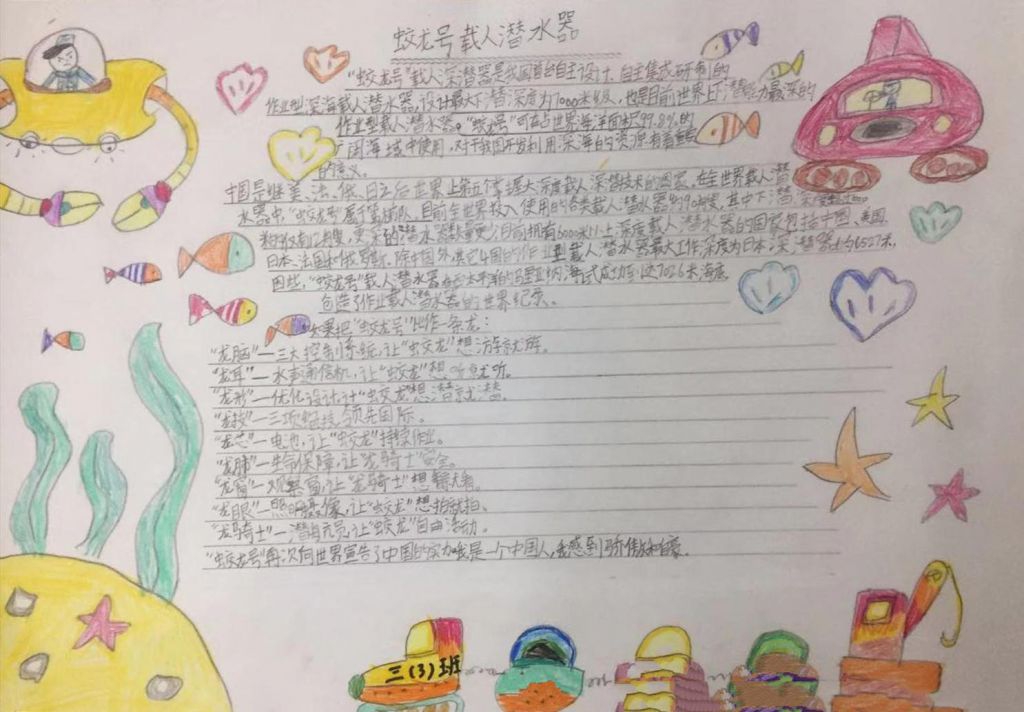 蛟龙号载人潜水器
"蛟龙号"载人深潜器是我国首台自主设计、自主集成研制的
作业型深海载人潜水器,设计最大下潜深度为7000米级,也是目前世界上下潜能力最深的
作业型载人潜水器。"蛟龙号"可在占世界海洋面积99.8%的
广阔海域中使用,对于我国开发利用深海的资源有着重要
的意义。
中国是继美、法、俄、日之后世界上第五个掌握大深度载人深潜技术的国家。在全世界载人潜
水器中,"蛟龙号"属于第一梯队。目前全世界投入使用的各类载人潜水器约90艘,其中下潜
仅有12艘,更深的潜水器数量更少,目前拥有6000米以上深度载人潜水器的国家包括中国、美国、
日本、法国和俄罗斯。除中国外,其它4国的作业型载人潜水器最大工作深度为日本深潜器的6527米,
因此,"蛟龙号"载人潜水器在西太平洋的马里亚纳海试成功到达7026米海底,
创造了作业载人潜水器的世界纪录。
如果把"蛟龙号"比作一条龙:
"龙脑"—三大控制系统,让"蛟龙"想游就游。
"龙耳"—水声通信机,让"蛟龙"想听就听。
"龙形"—优化设计,让"蛟龙"想潜就潜。
"龙技"—三项 技领先国际。
"龙芯"—电池,让"蛟龙"持续作业。
"龙肺"—生命保障,让"龙骑士"安全。
"龙窗"—观察窗,让"龙骑士"想
"龙眼"—照明摄像,让"蛟龙"想拍就拍。
"龙骑士"—潜航员,让"蛟龙"自由活动。
"蛟龙号"再次向世界宣告了中国的实力,我是一个中国人,我感到骄傲和自豪。
三(3)班